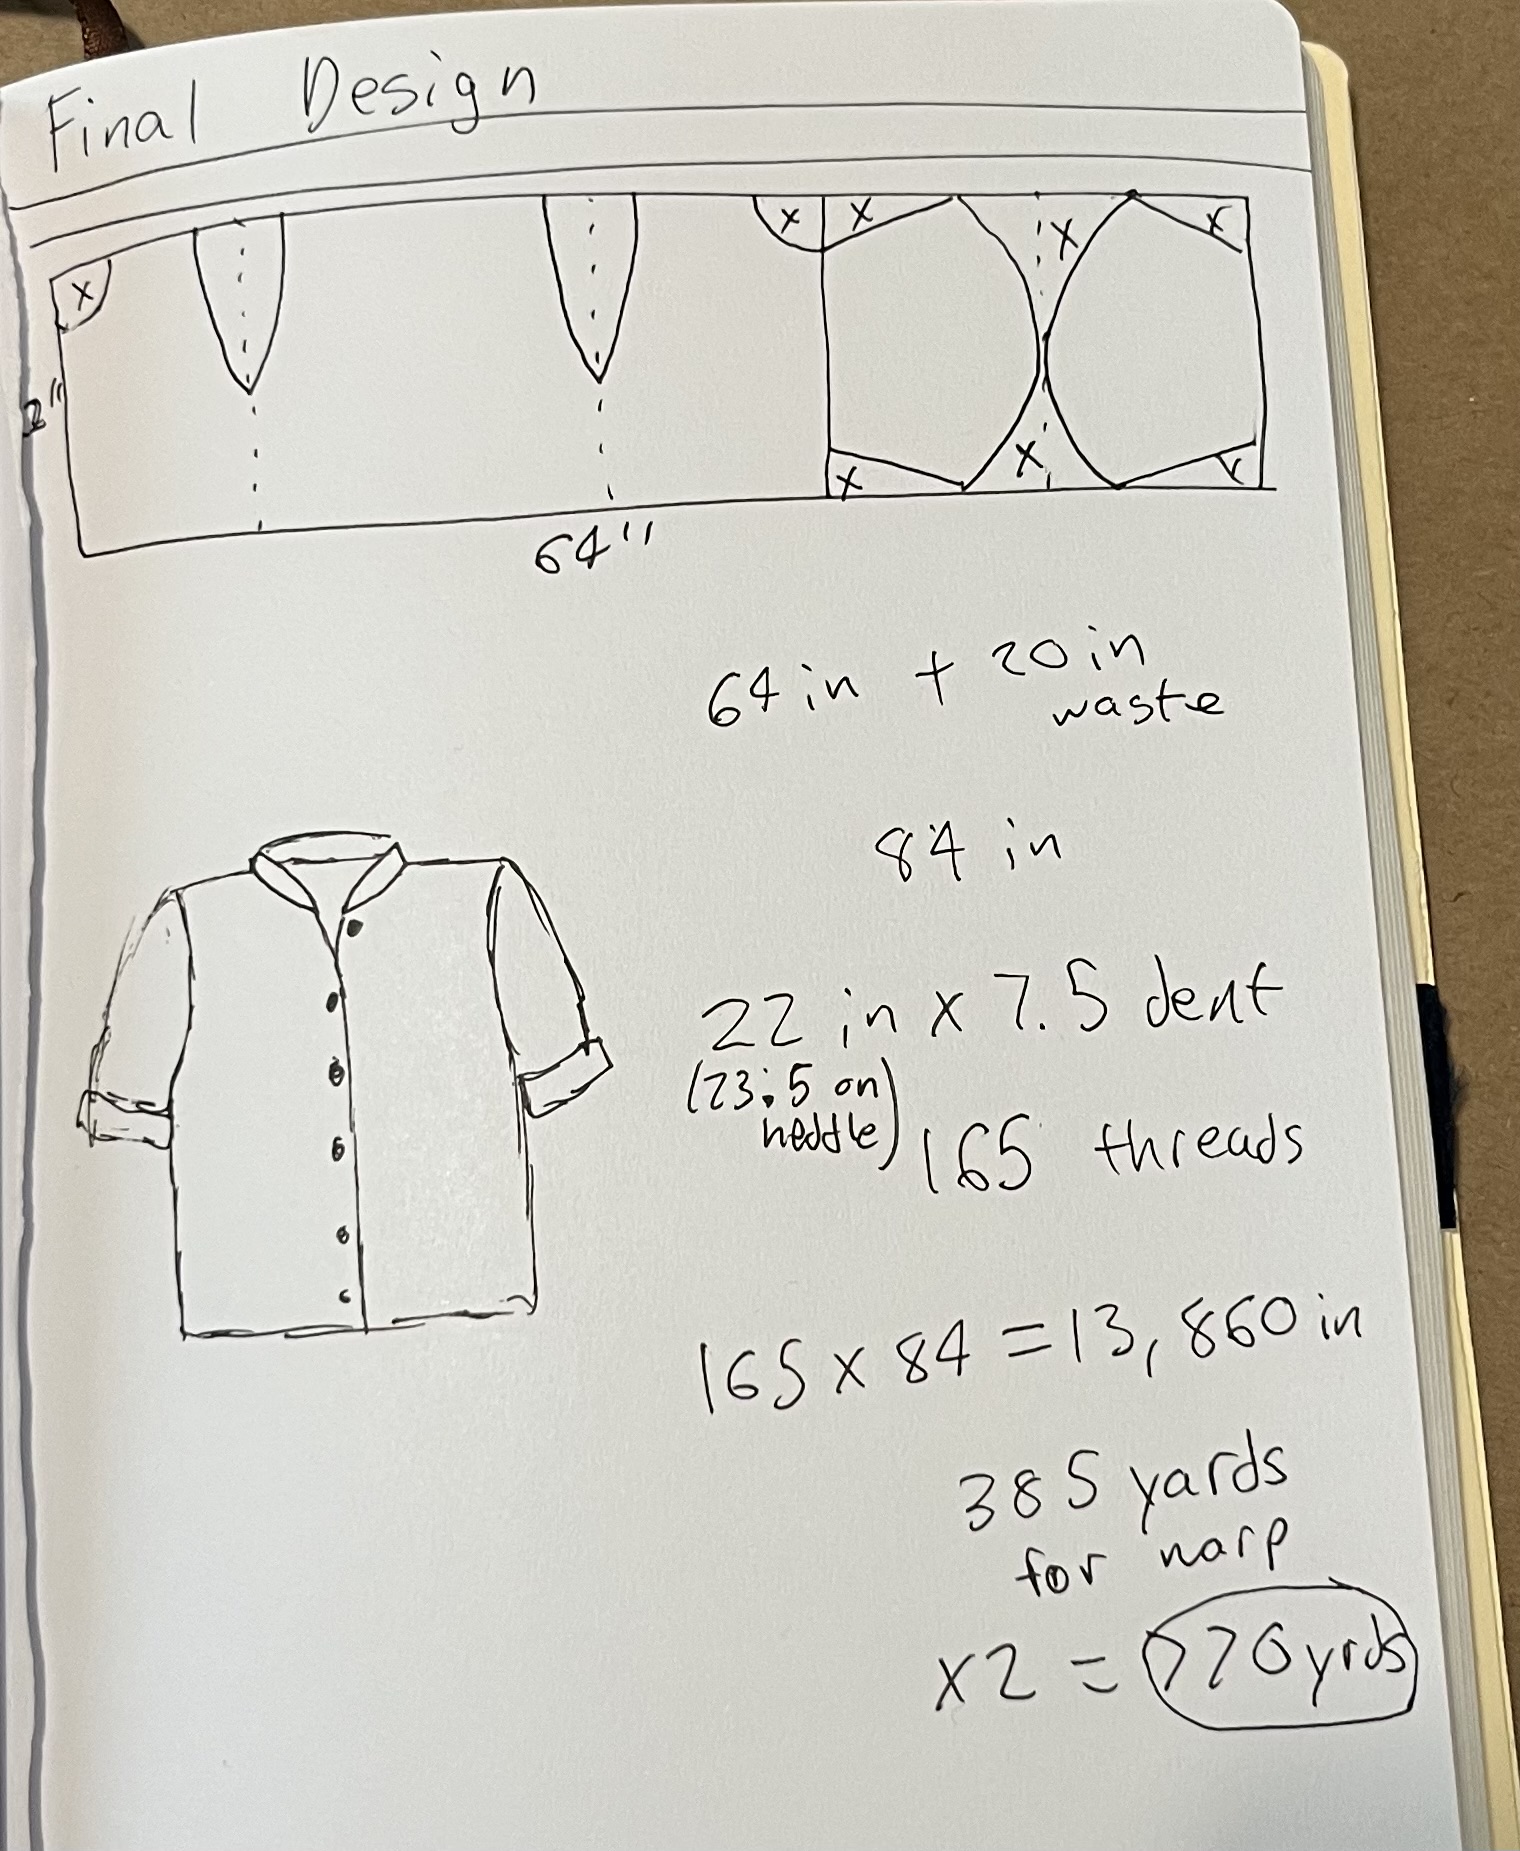 Final Design
x
x
x
x
x
x
x
x
64"
64 in + 20 in
waste
84 in
22 in x 7.5 dent
(23.5 on
heddle)
165 threads
165 x 84 = 13,860 in
385 yards
for warp
x2 = 770 yrds